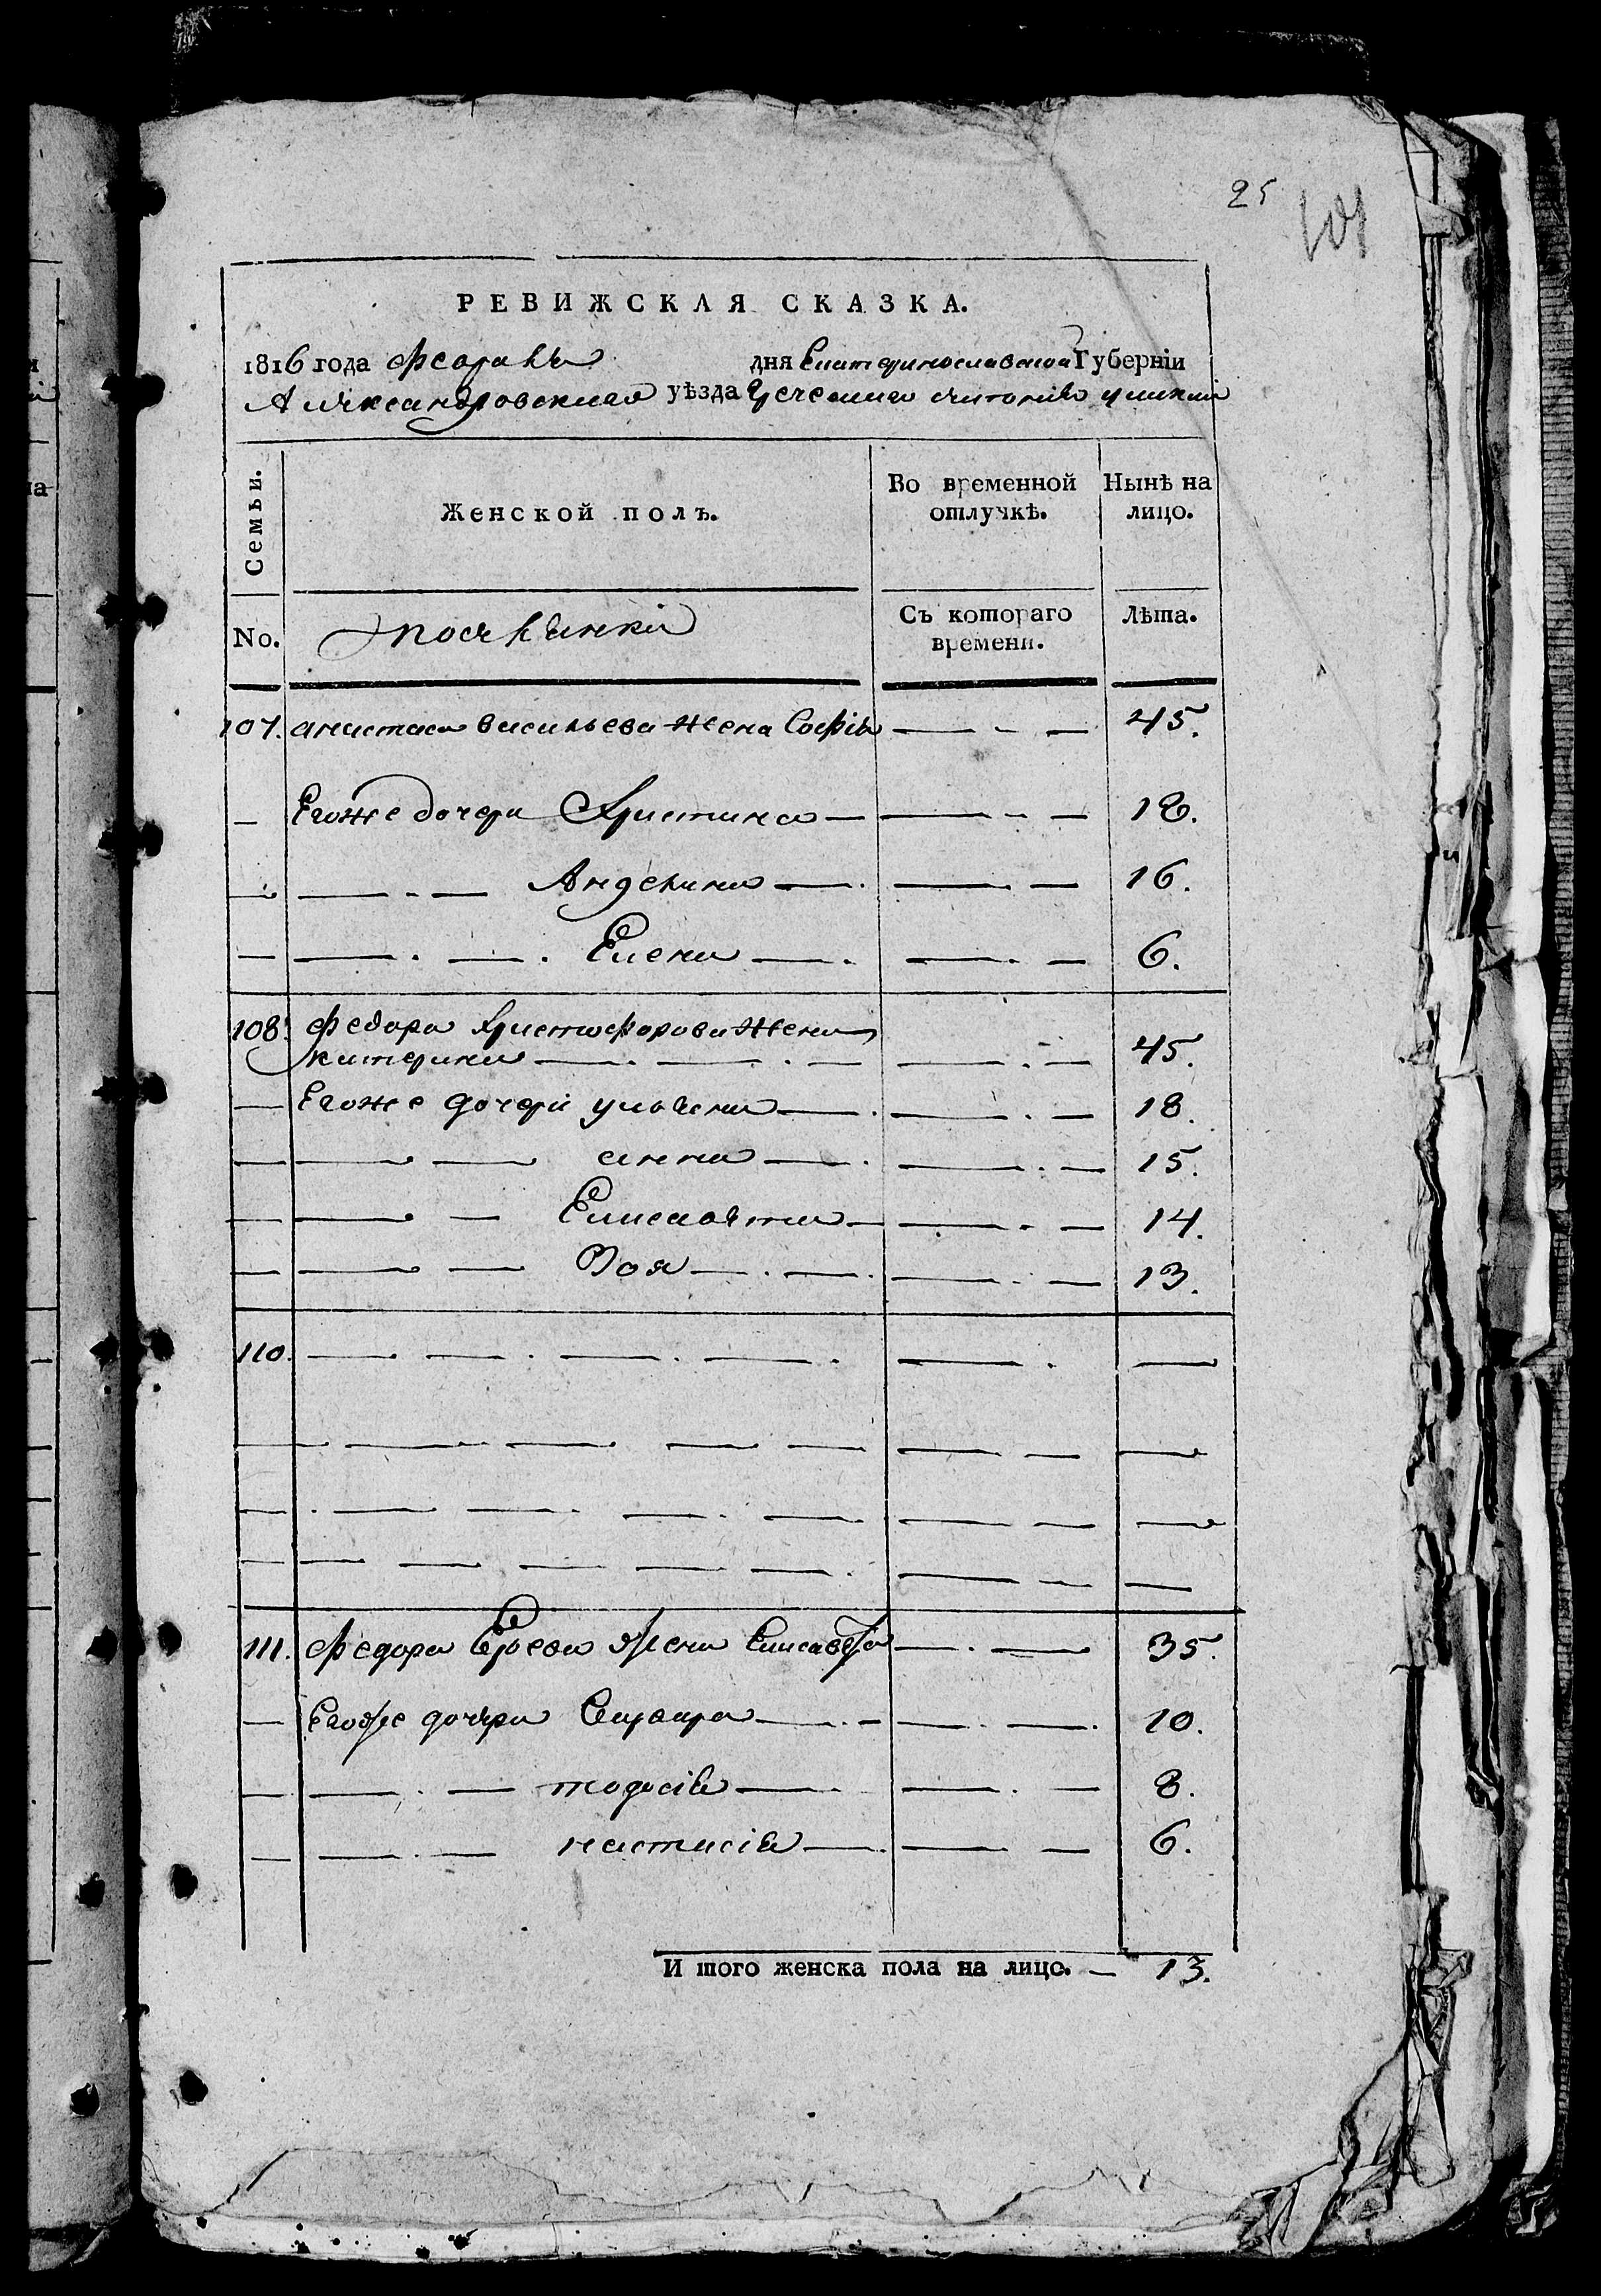 25
101
РЕВИЖСКАЯ СКАЗКА.
1816 года Февраля дня Екатеринославской Губерніи
Александровскаго уѣзда Греческаго
Семьи.
Женской полъ.
Во временной отлучкѣ.
Нынѣ на лицо.
No.
Съ котораго времени.
Лѣта.
107. анастаса васильева жена Софія — - — 45.
— Егоже дочери Христина — — - — 18.
— — - — Ангелина — . — — 16.
— — . — . Елена — . — . — 6.
108. Федора Христофорова жена
катерина — . — . — — . — 45.
— Егоже дочери ульяна — . — . — 18.
— — — анна — . — . — 15.
— — — Елисавета — — . — 14.
— — — Зоя — . — . — . — 13.
110. — — . — . — . — . —
111. Федора жена Елисавета — . — 35.
— Егоже дочери — . — — . — . 10.
— — . — тодосія — — . — 8.
— — . — настасія — . — — 6.
И того женска пола на лицо. — 13.